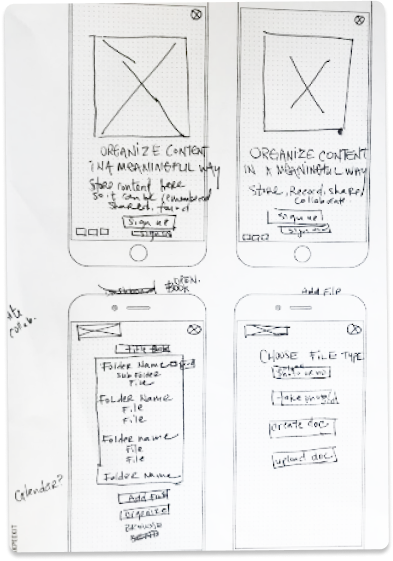 ORGANIZE CONTENT
IN A MEANINGFUL WAY
Store content here
so it can be remembered
shared, found
Sign up
Sign in
ORGANIZE CONTENT
IN A MEANINGFUL WAY
Store, Record, share,
Collaborate
Sign up
Sign in
OPEN
BOOK
Title Book
Folder Name
Sub Folder
File
FOLDER NAME
File
File
Folder name
File
File
Folder Name
Add File
Organize
Calender?
Add File
CHOOSE FILE TYPE
create doc
upload doc